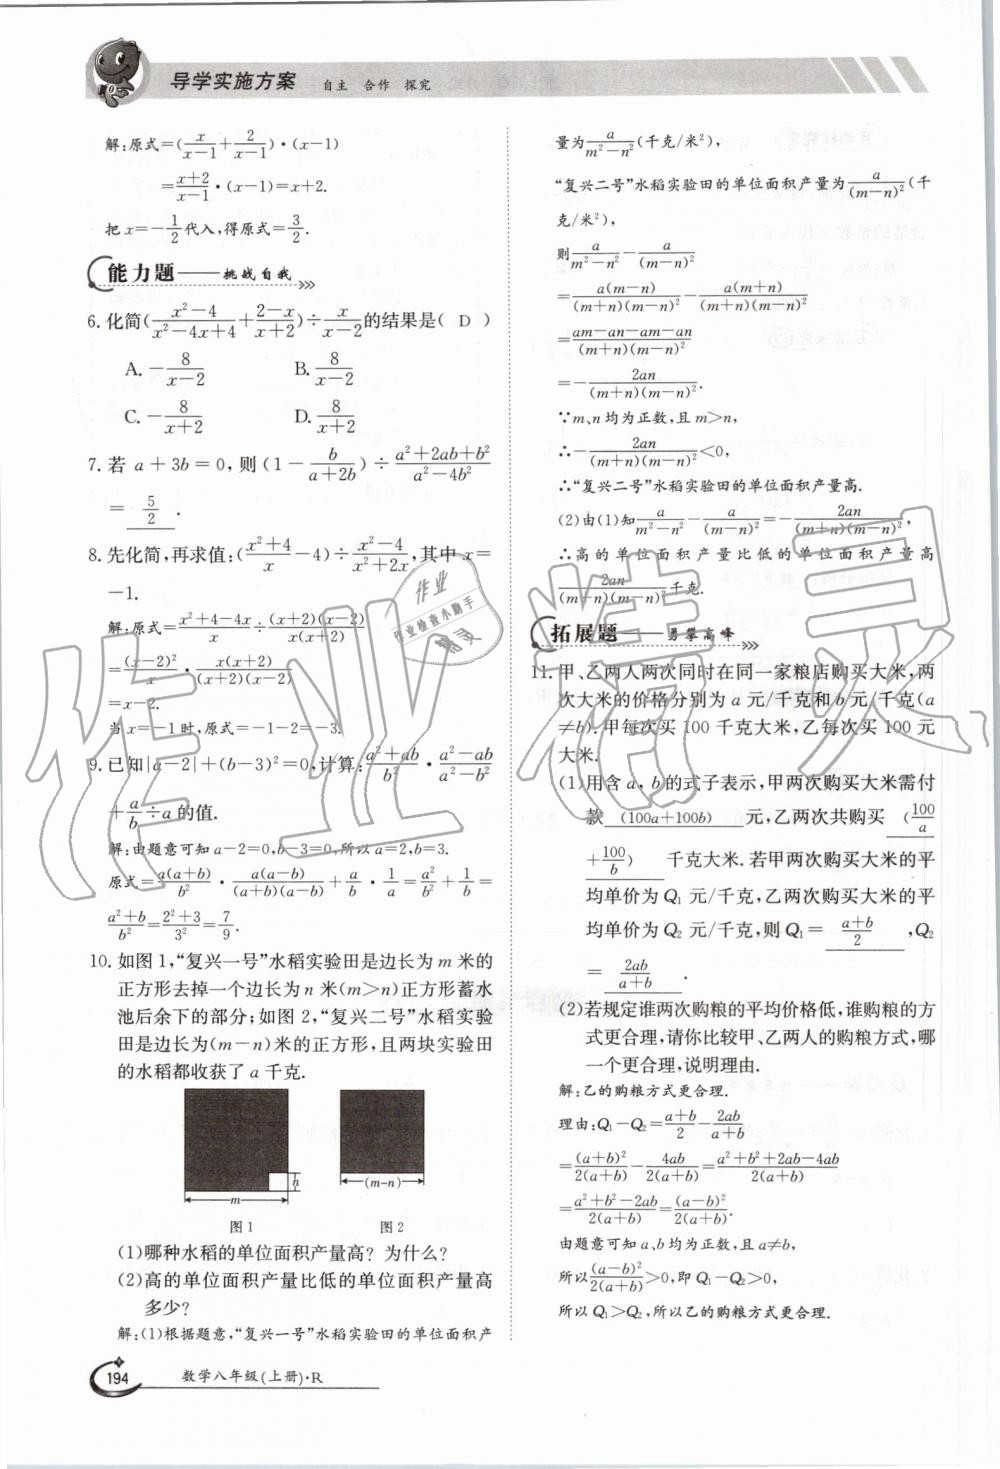 导学实施方案 自主 合作 探究
解:原式=(x/(x-1)+2/(x-1))·(x-1)
=(x+2)/(x-1)·(x-1)=x+2.
把x=-1/2代入,得原式=3/2.
能力题——挑战自我
6.化简((x²-4)/(x²-4x+4)+(2-x)/(x+2))÷x/(x-2)的结果是( D )
A.-8/(x-2) B.8/(x-2)
C.-8/(x+2) D.8/(x+2)
7.若a+3b=0,则(1-b/(a+2b))÷(a²+2ab+b²)/(a²-4b²)
=5/2.
8.先化简,再求值:((x²+4)/x-4)÷(x²-4)/(x²+2x),其中x=
-1.
解:原式=(x²+4-4x)/x÷(x+2)(x-2)/x(x+2)
=(x-2)²/x·x(x+2)/(x+2)(x-2)
=x-2.
当x=-1时,原式=-1-2=-3.
9.已知|a-2|+(b-3)²=0,计算:(a²+ab)/b²·(a²-ab)/(a²-b²)
+a/b÷a的值.
解:由题意可知a-2=0,b-3=0,所以a=2,b=3.
原式=a(a+b)/b²·a(a-b)/(a+b)(a-b)+a/b·1/a=a²/b²+1/b=
(a²+b)/b²=(2²+3)/3²=7/9.
10.如图1,“复兴一号”水稻实验田是边长为m米的
正方形去掉一个边长为n米(m>n)正方形蓄水
池后余下的部分;如图2,“复兴二号”水稻实验
田是边长为(m-n)米的正方形,且两块实验田
的水稻都收获了a千克.
n
m (m-n)
图1 图2
(1)哪种水稻的单位面积产量高?为什么?
(2)高的单位面积产量比低的单位面积产量高
多少?
解:(1)根据题意,“复兴一号”水稻实验田的单位面积产
194 数学八年级(上册)·R
量为a/(m²-n²)(千克/米²),
“复兴二号”水稻实验田的单位面积产量为a/(m-n)²(千
克/米²),
则a/(m²-n²)-a/(m-n)²
=a(m-n)/(m+n)(m-n)²-a(m+n)/(m+n)(m-n)²
=(am-an-am-an)/(m+n)(m-n)²
=-2an/(m+n)(m-n)².
∵m、n均为正数,且m>n,
∴-2an/(m+n)(m-n)²<0,
∴“复兴二号”水稻实验田的单位面积产量高.
(2)由(1)知a/(m²-n²)-a/(m-n)²=-2an/(m+n)(m-n)²,
∴高的单位面积产量比低的单位面积产量高
2an/(m+n)(m-n)²千克.
拓展题——勇攀高峰
11.甲、乙两人两次同时在同一家粮店购买大米,两
次大米的价格分别为a元/千克和b元/千克(a
≠b).甲每次买100千克大米,乙每次买100元
大米.
(1)用含a,b的式子表示,甲两次购买大米需付
款(100a+100b)元,乙两次共购买(100/a
+100/b)千克大米.若甲两次购买大米的平
均单价为Q₁元/千克,乙两次购买大米的平
均单价为Q₂元/千克,则Q₁=(a+b)/2,Q₂
=2ab/(a+b).
(2)若规定谁两次购粮的平均价格低,谁购粮的方
式更合理,请你比较甲、乙两人的购粮方式,哪
一个更合理,说明理由.
解:乙的购粮方式更合理.
理由:Q₁-Q₂=(a+b)/2-2ab/(a+b)
=(a+b)²/2(a+b)-4ab/2(a+b)=(a²+b²+2ab-4ab)/2(a+b)
=(a²+b²-2ab)/2(a+b)=(a-b)²/2(a+b).
由题意可知a、b均为正数,且a≠b,
所以(a-b)²/2(a+b)>0,即Q₁-Q₂>0,
所以Q₁>Q₂,所以乙的购粮方式更合理.
作业精灵
作业
作业检查小助手
精灵